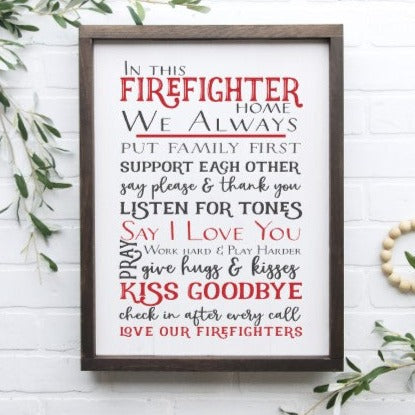 In this
FIREFIGHTER
HOME
We Always
PUT FAMILY FIRST
SUPPORT EACH OTHER
say please & thank you
LISTEN FOR TONES
Say I Love You
PRAY
Work hard & Play Harder
give hugs & kisses
KISS GOODBYE
check in after every call
LOVE OUR FIREFIGHTERS